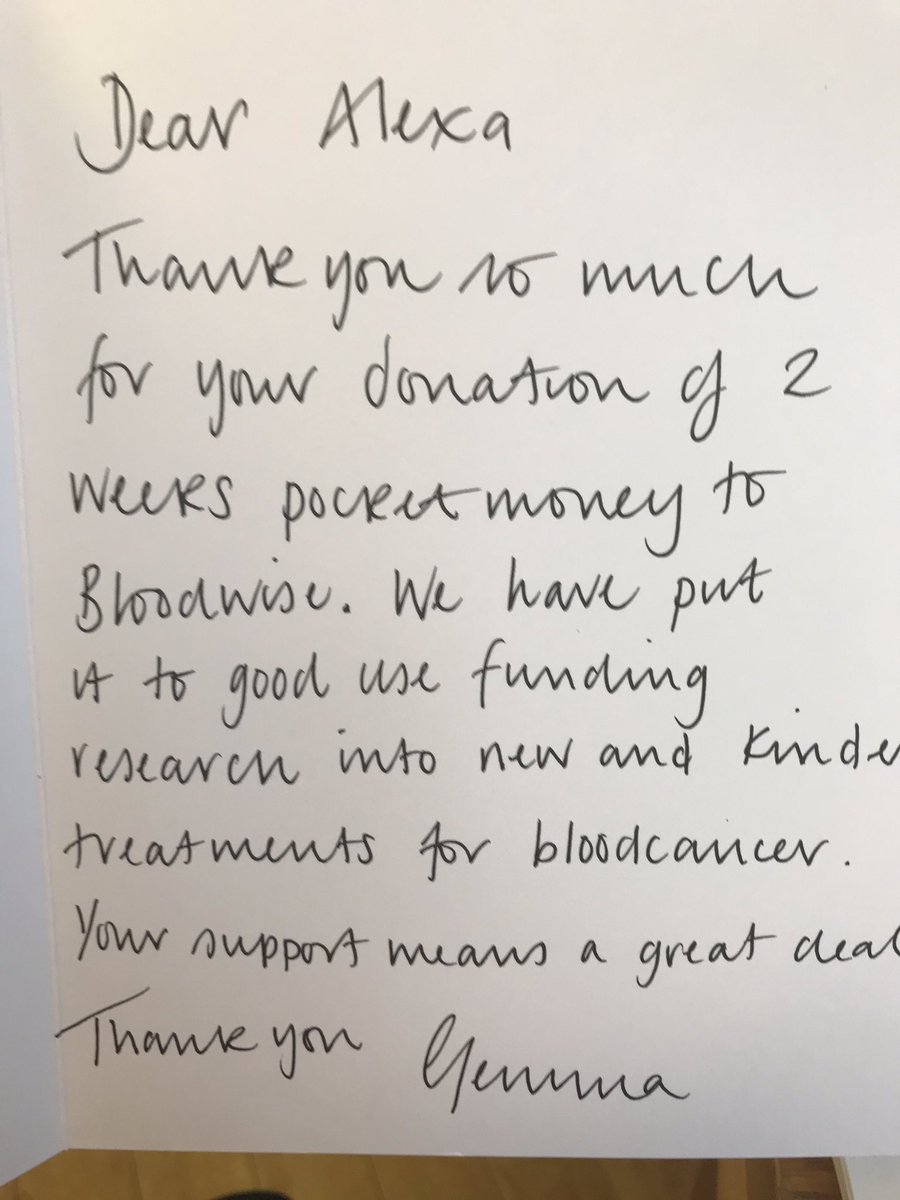 Dear Alexa
Thank you so much
for your donation of 2
weeks pocketmoney to
Bloodwise. We have put
it to good use funding
research into new and kinde
treatments for bloodcancer.
Your support means a great deal
Thank you Gemma